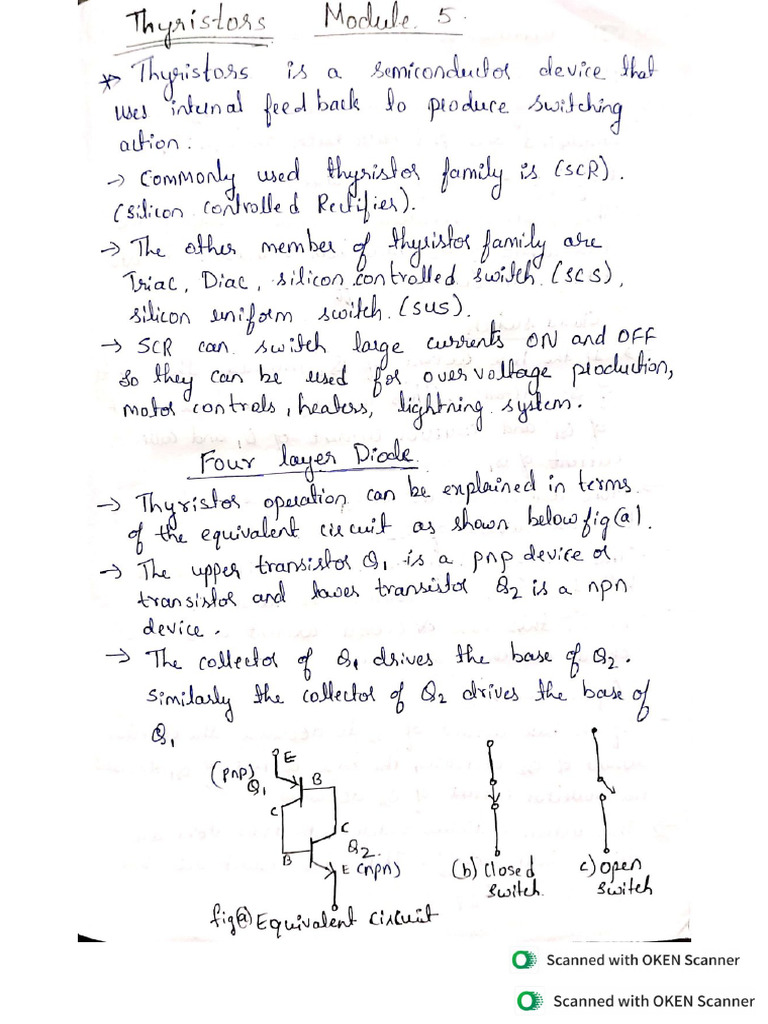 Thyristors Module 5.
* Thyristors is a semiconductor device that
uses internal feedback to produce switching
action:
→ Commonly used thyristor family is (SCR).
(Silicon Controlled Rectifier).
→ The other member of thyristor family are
Triac, Diac, silicon controlled switch (SCS),
silicon uniform switch. (SUS).
→ SCR can switch large currents ON and OFF
so they can be used for overvoltage production,
motor controls, heaters, lightning system.
Four layer Diode.
→ Thyristor operation can be explained in terms
of the equivalent circuit as shown below fig(a).
→ The upper transistor Q1 is a pnp device or
transistor and lower transistor Q2 is a npn
device.
→ The collector of Q1 drives the base of Q2.
Similarly the collector of Q2 drives the base of
Q1
E
(pnp) Q1
B
C
C
B
Q2
E (npn)
fig(a) Equivalent Circuit
(b) Closed
switch.
c) Open
switch
Scanned with OKEN Scanner
Scanned with OKEN Scanner